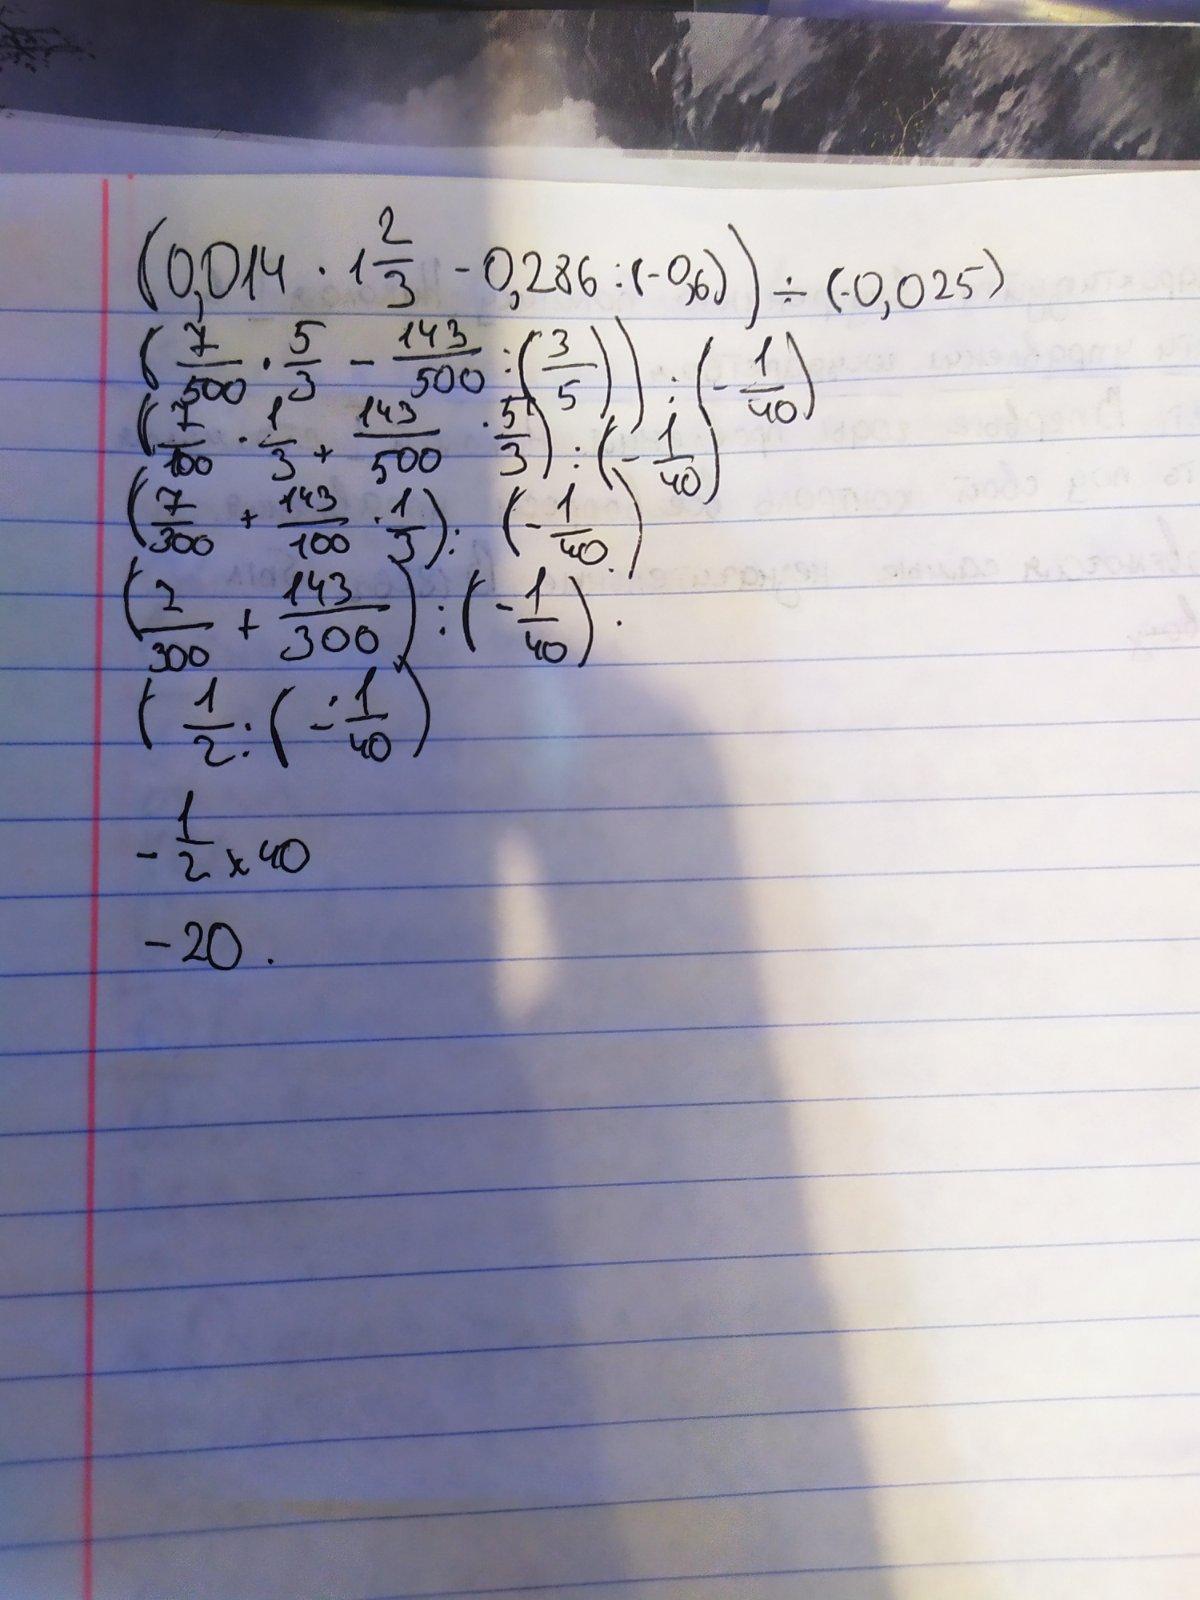 (0,014 · 1 2/3 - 0,286 : (-0,6)) ÷ (-0,025)
(7/500 · 5/3 - 143/500 : (3/5)) : (-1/40)
(7/100 · 1/3 + 143/500 · 5/3) : (-1/40)
(7/300 + 143/100 · 1/3) : (-1/40)
(7/300 + 143/300) : (-1/40).
(1/2 : (-1/40)
-1/2 x 40
-20.